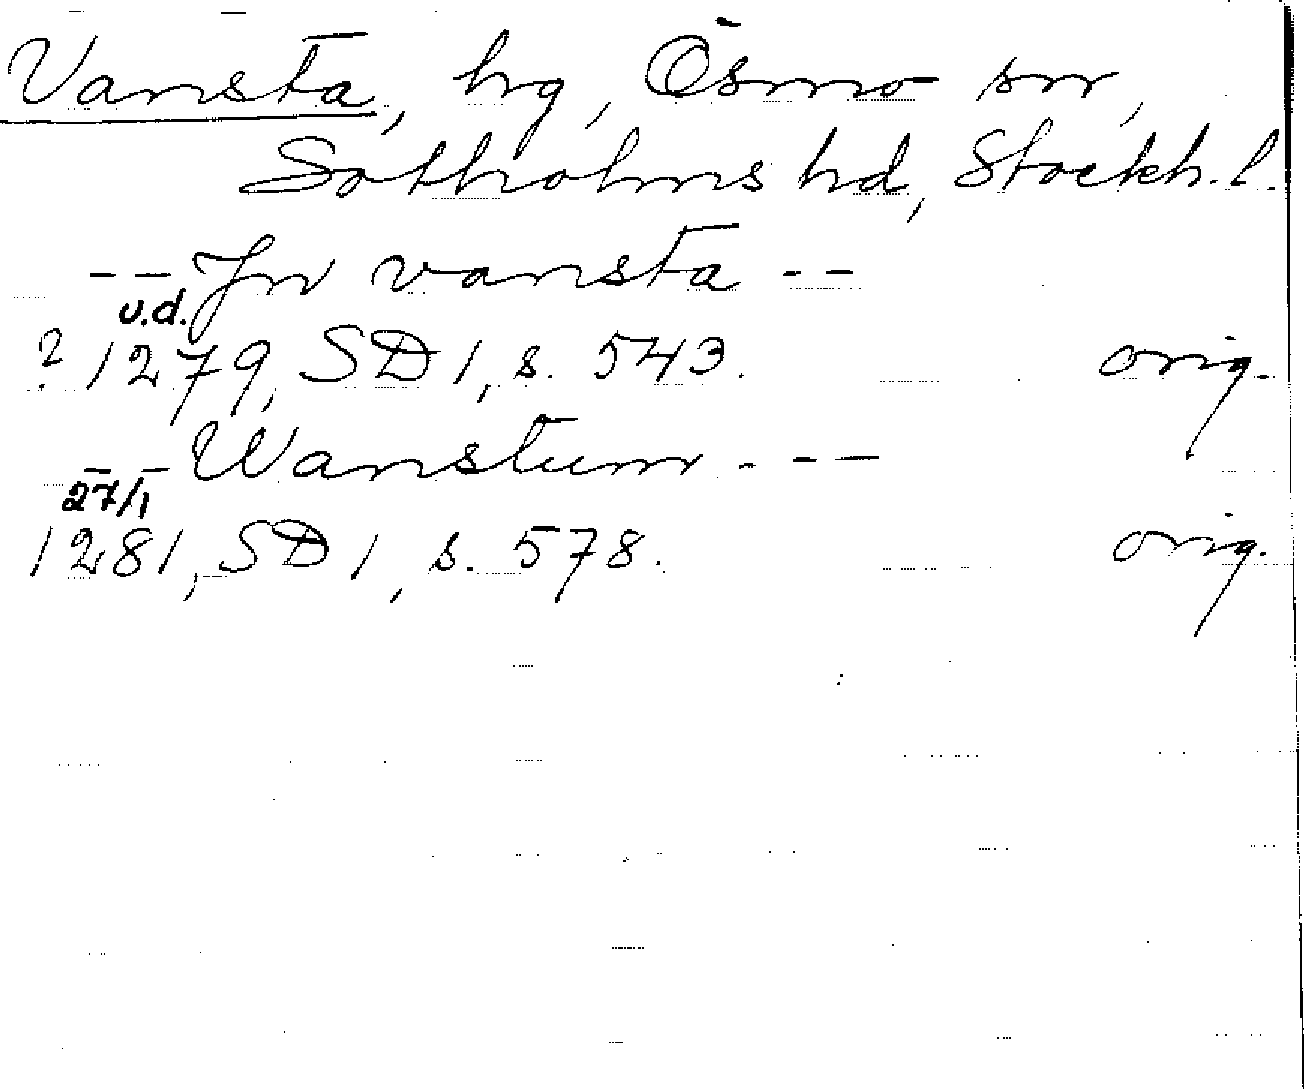 Vansta, hg, Ösmo sn,
Sotholms hd, Stockh. l.
-- In vansta --
u.d.
? 1279, SD 1, s. 543. orig.
-- Wanstum ---
27/1
1281, SD 1, s. 578. orig.